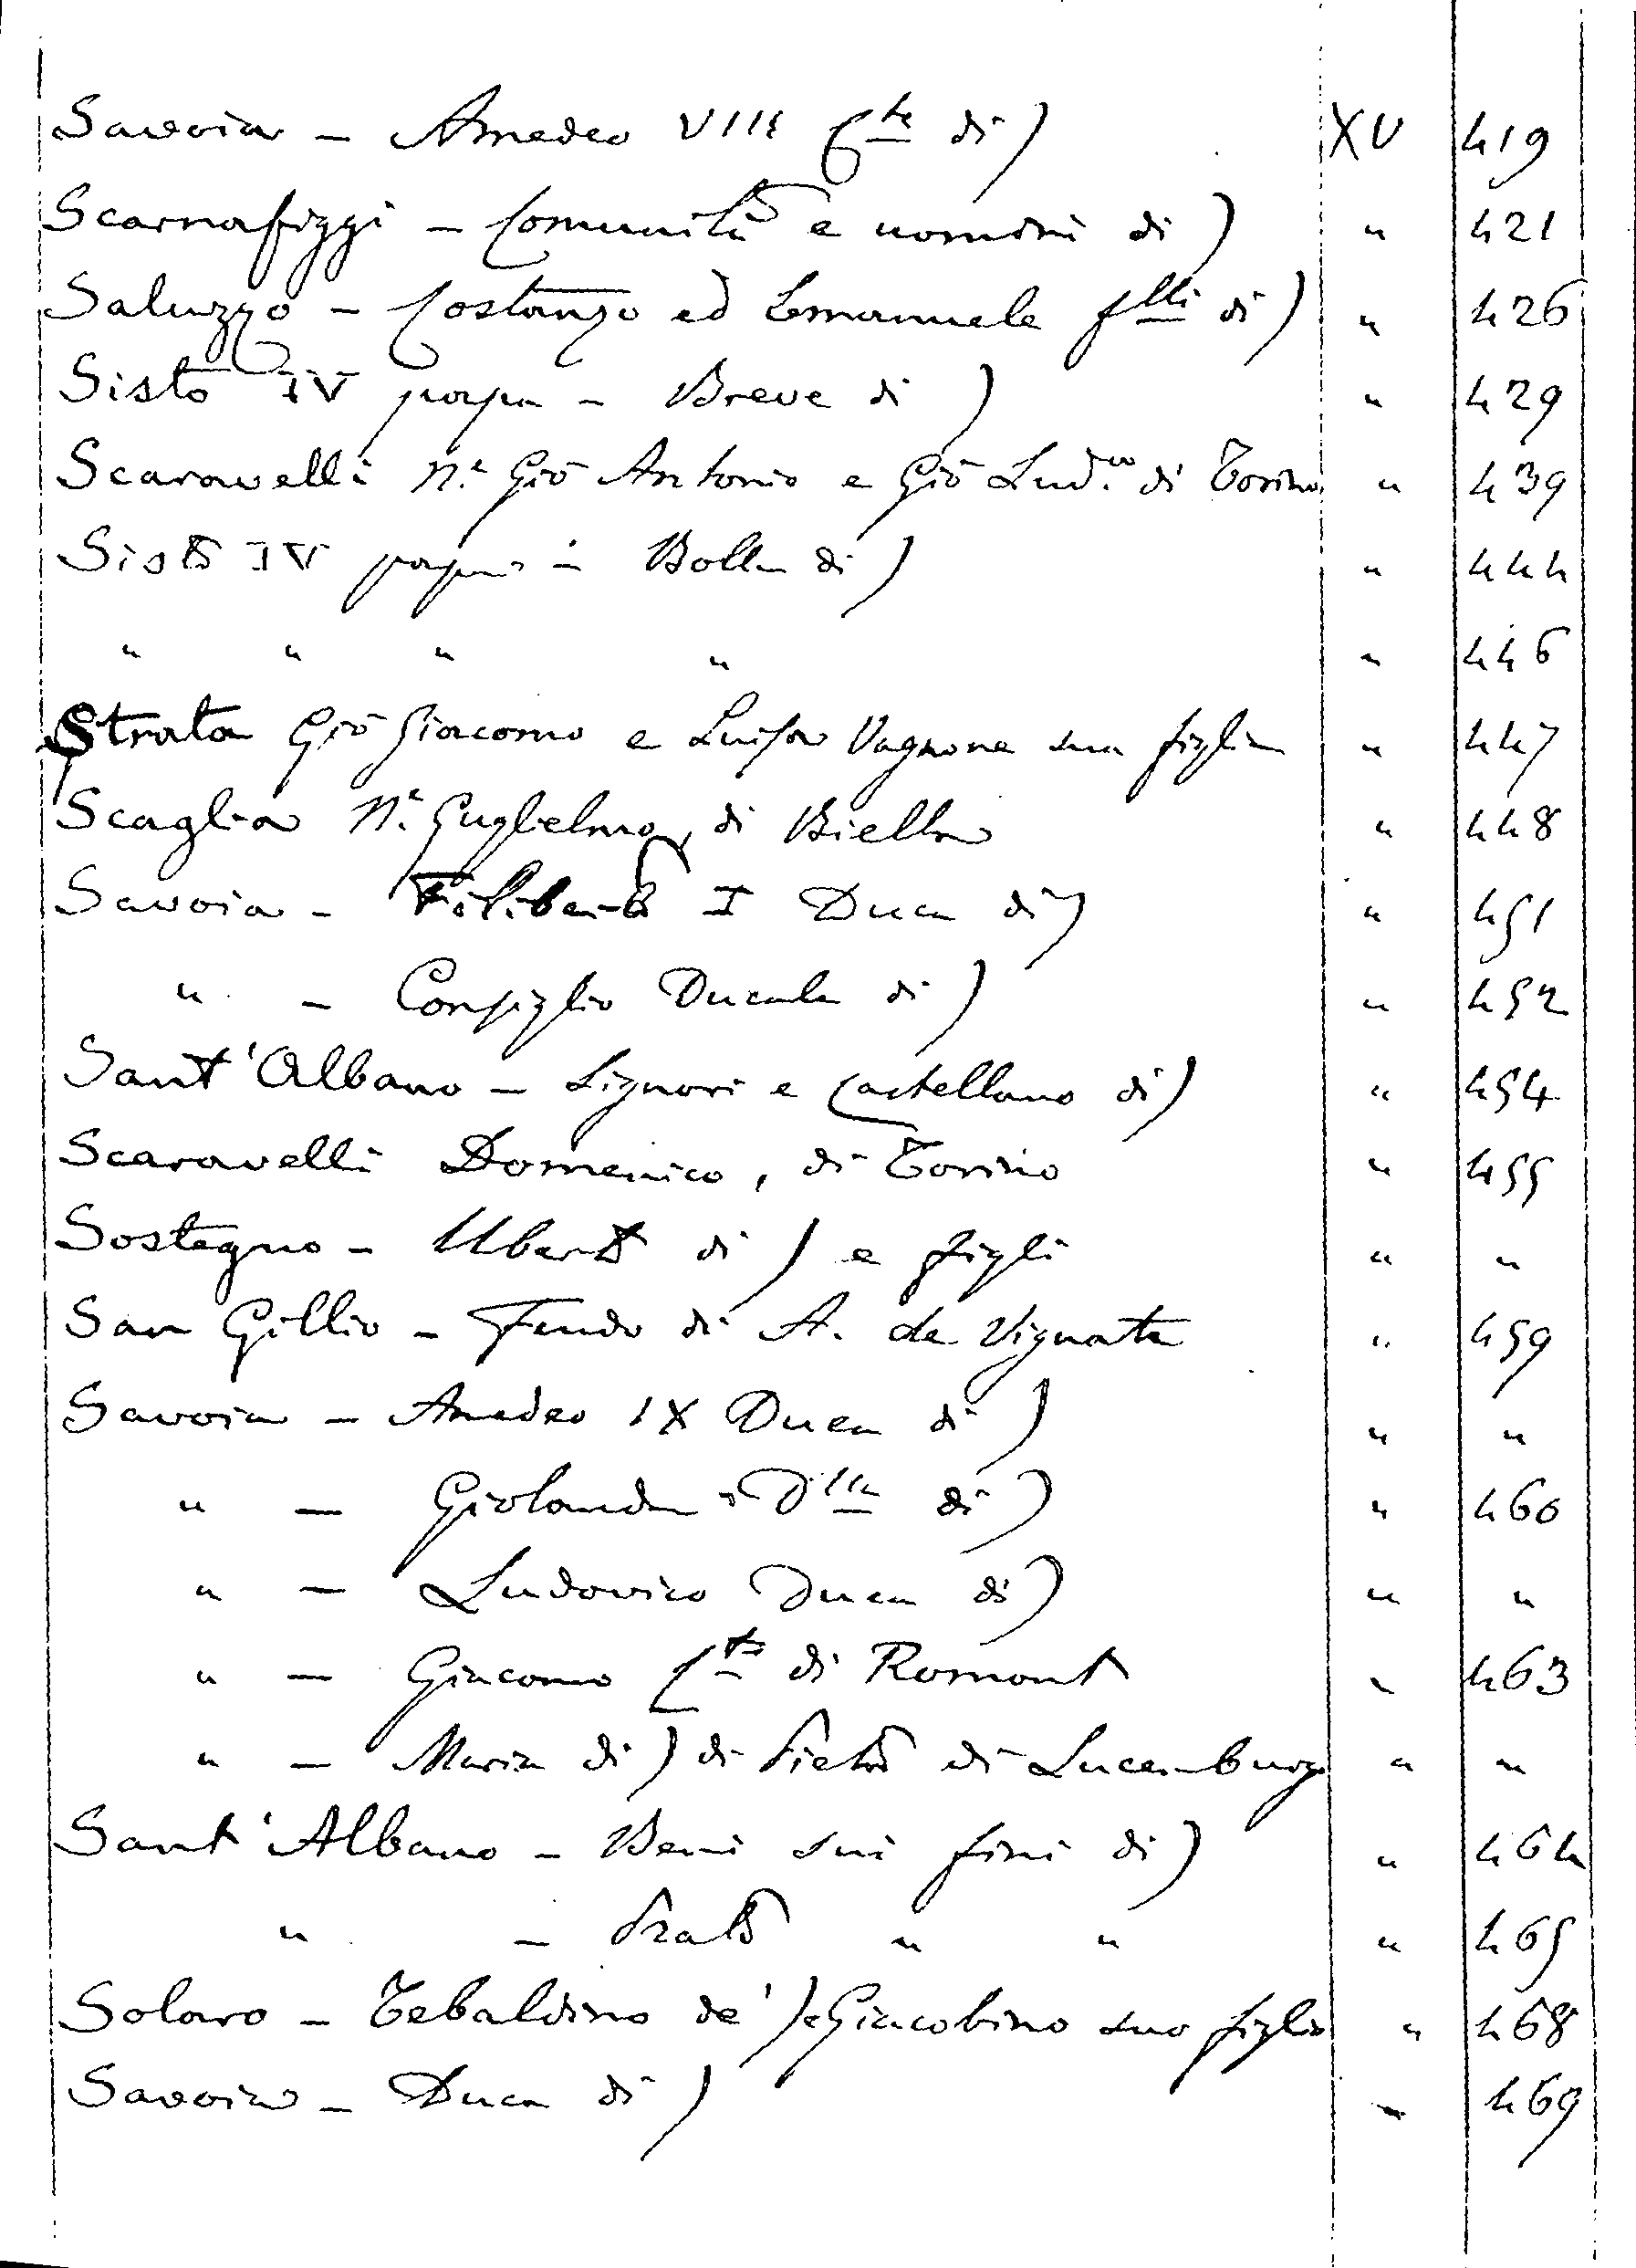 Savoia - Amedeo VIII C.te di) XV 419
Scarnafiggi - Comunità e uomini di) " 421
Saluzzo - Costanzo ed Emanuele f.lli di) " 426
Sisto IV papa - Breve di) " 429
Scaravelli N.e Giō Antonio e Giō Lud.co di Torino " 439
Sisto IV papa - Bolla di) " 444
" " " " " 446
Strata Giō Giacomo e Luisa Vagnone sua figlia " 447
Scaglia N.e Guglielmo, di Biella " 448
Savoia - Filiberto I Duca di) " 451
" - Consiglio Ducale di) " 452
Sant'Albano - Signori e Castellano di) " 454
Scaravelli Domenico, di Torino " 455
Sostegno - Uberto di) e figli " "
San Gillio - Feudo di A. de Vignate " 459
Savoia - Amedeo IX Duca di) " "
" - Giolanda D.lla di) " 460
" - Ludovico Duca di) " "
" - Giacomo C.te di Romont " 463
" - Maria di) di Pietro di Lucemburgo " "
Sant'Albano - Beni sui fini di) " 464
" - Prato " " " 465
Solaro - Tebaldino de') e Giacobino suo figlio " 468
Savoia - Duca di) " 469